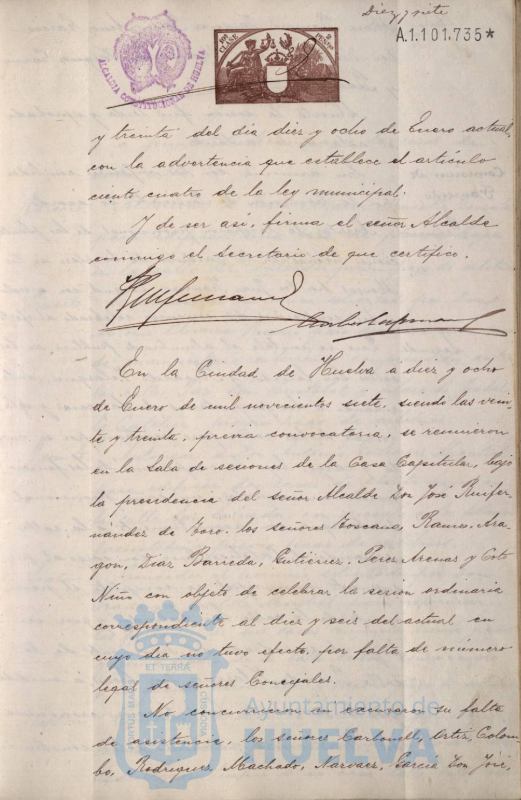 Diez y siete
A.1.101.735*
ALCALDIA CONSTITUCIONAL DE HUELVA
10ª CLASE
2 PESTAS
y treinta del dia diez y ocho de Enero actual,
con la advertencia que establece el artículo
ciento cuatro de la ley municipal.
Y de ser así, firma el señor Alcalde
conmigo el Secretario de que certifico.
En la Ciudad de Huelva a diez y ocho
de Enero de mil novecientos siete, siendo las vein-
te y treinta, previa convocatoria, se reunieron
en la Sala de sesiones de la Casa Capitular, bajo
la presidencia del señor Alcalde Don José Ruifer-
nández de Toro. los señores Toscano, Ramos, Ara-
gon, Diaz Barreda, Gutiérrez, Perez Arenas y Coto
Niño con objeto de celebrar la sesión ordinaria
correspondiente al diez y seis del actual en
cuyo dia no tuvo efecto, por falta de número
legal de señores Concejales.
No concurrieron ni excusaron su falta
de asistencia, los señores Carbonell, Ortiz, Colom-
bo, Rodriguez, Machado, Narvaez, Garcia Don José,
PORTUS MARIS
ET TERRÆ
CUSTODIA
Ayuntamiento de
HUELVA